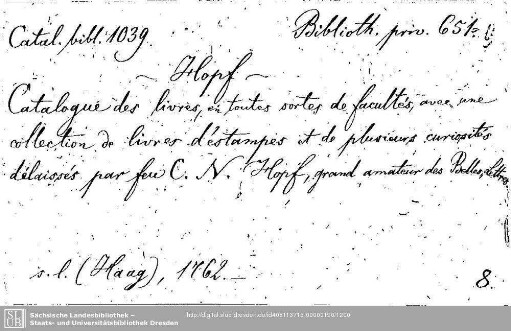 Catal. bibl. 1039. Biblioth. priv. 651
Hopf
Catalogue des livres, en toutes sortes de facultés, avec une
collection de livres d'éstampes et de plusieurs curiosités
délaissés par feu C. N. Hopf, grand amateur des Belles-lettres.
s. l. (Haag), 1762. 8.
SLUB
Sächsische Landesbibliothek –
Staats- und Universitätsbibliothek Dresden